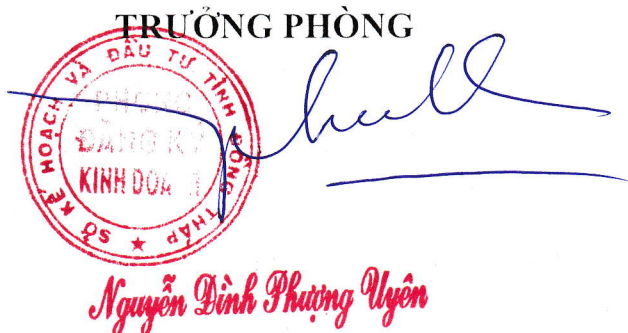 TRƯỞNG PHÒNG
SỞ KẾ HOẠCH VÀ ĐẦU TƯ TỈNH ĐỒNG THÁP
PHÒNG
ĐĂNG KÝ
KINH DOANH
Nguyễn Đình Phượng Uyên